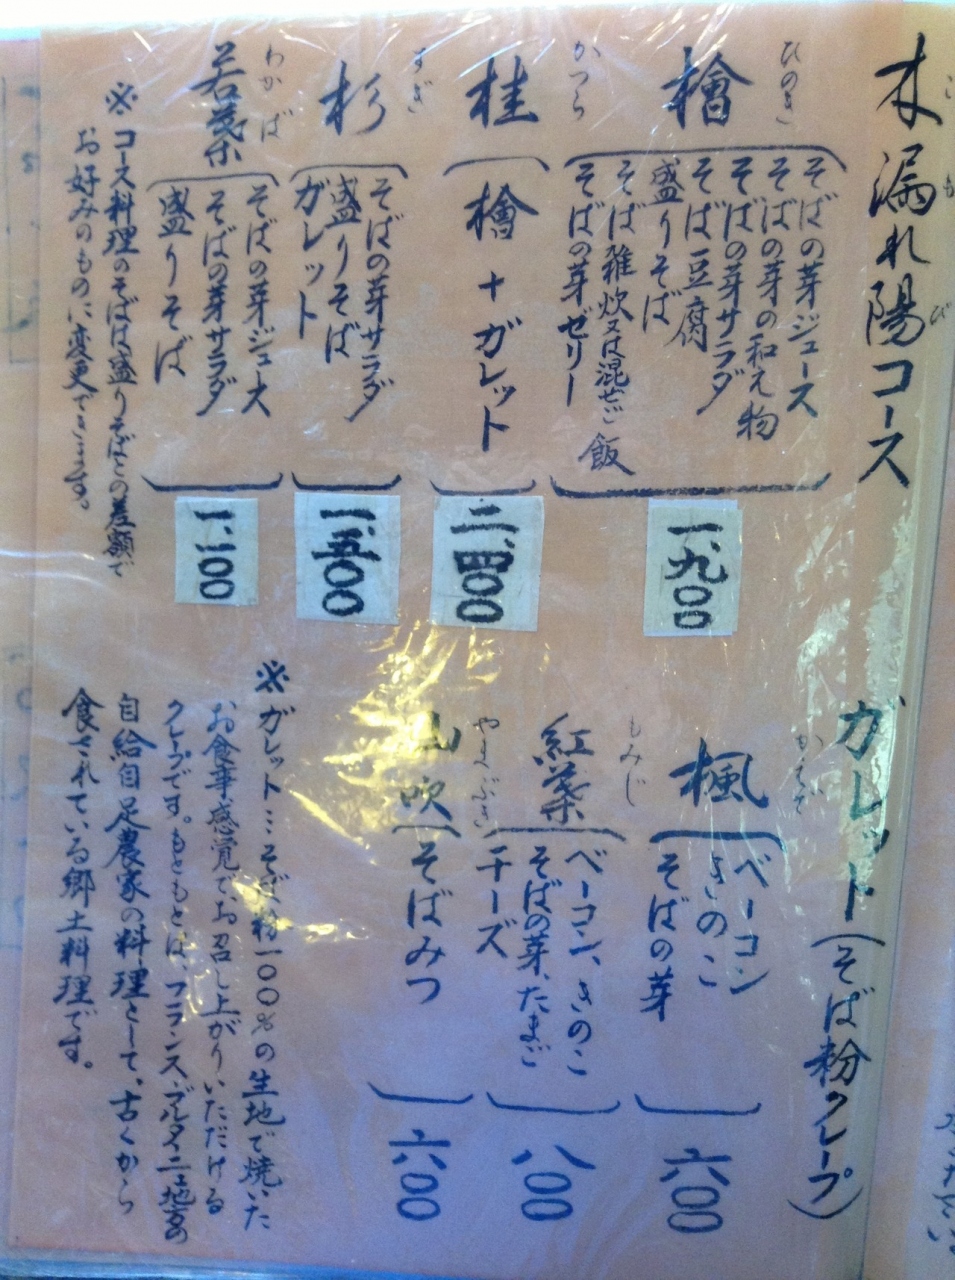 木漏れ陽コース
こもれび
檜
ひのき
そばの芽ジュース
そばの芽の和え物
そばの芽サラダ
そば豆腐
盛りそば
そば雑炊又は混ぜご飯
そばの芽ゼリー
一、九〇〇
桂
かつら
檜+ガレット
二、四〇〇
杉
すぎ
そばの芽サラダ
盛りそば
ガレット
一、五〇〇
若葉
わかば
そばの芽ジュース
そばの芽サラダ
盛りそば
一、一〇〇
※コース料理のそばは盛りそばとの差額で
お好みのものに変更できます。
ガレット(そば粉クレープ)
楓
かえで
ベーコン
きのこ
そばの芽
六〇〇
紅葉
もみじ
ベーコン、きのこ
そばの芽、たまご
チーズ
八〇〇
山吹
やまぶき
そばみつ
六〇〇
※ガレット…そば粉一〇〇%の生地で焼いた
お食事感覚でお召し上がりいただける
クレープです。もともとは、フランス・ブルターニュ地方の
自給自足農家の料理として、古くから
食されている郷土料理です。